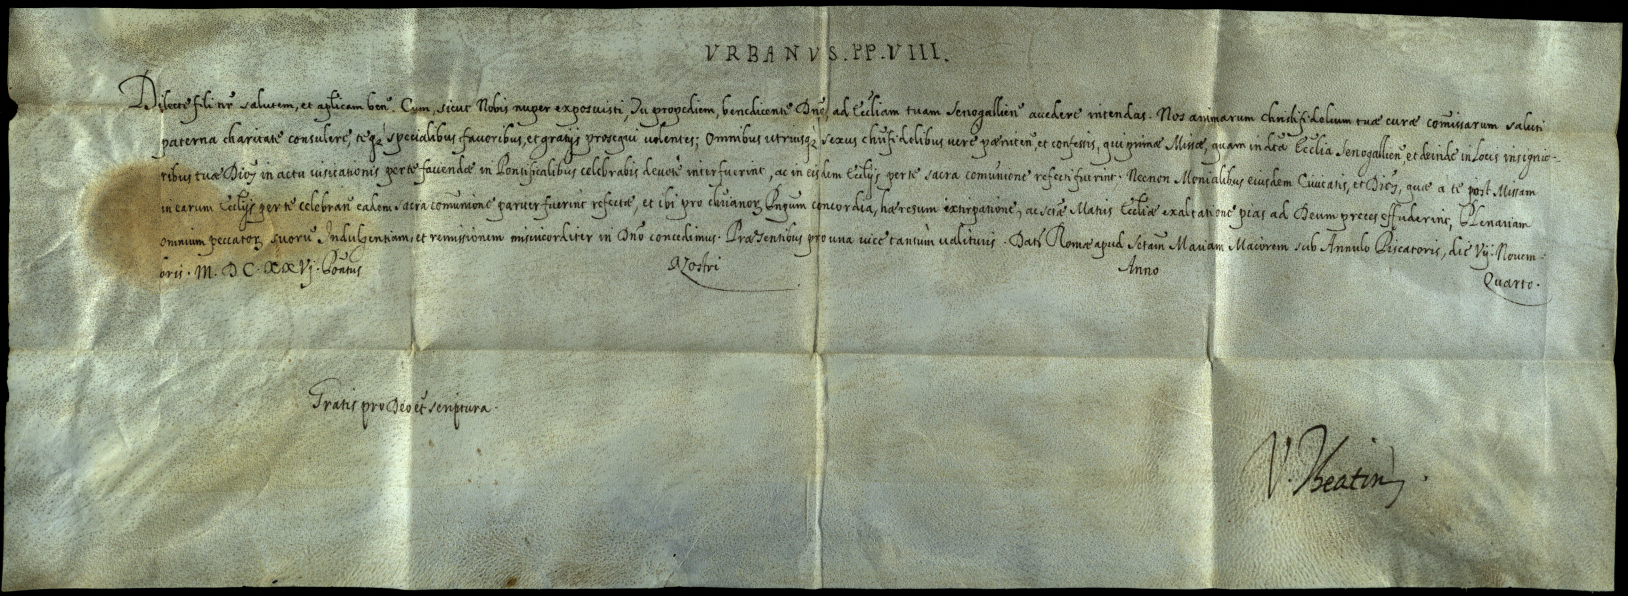 URBANUS.PP.VIII.
Dilecte fili nr̃ salutem, et ap̃licam ben̄. Cum, sicut Nobis nuper exposuisti, Tu propediem, benedicente Dn̄o, ad Ecc̃liam tuam Senogallien̄ accedere intendas. Nos animarum christifidelium tuæ curæ com̄issarum saluti
paterna charitate consulere, teq₃ specialibus favoribus, et gratijs prosequi volentes; Omnibus utriusq₃ sexus chris̃fidelibus vere pæniten̄, et confessis, qui primæ Missæ, quam in dc̃a Ecc̃lia Senogallien̄ et deinde in locis insignio-
ribus tuæ Dioc̄ in actu visitationis per te faciendæ in Pontificalibus celebrabis devotè interfuerint, ac in eisdem Ecc̃lijs per te sacra com̄unione refecti fuerint. Necnon Monialibus eiusdem Civitatis, et Dioc̄, quæ a te post Missam
in earum Ecc̃lijs per te celebran̄ eadem sacra com̄unione pariter fuerint refectæ, et ibi pro chr̃ianor₄ Pn̄cum concordia, hæresum extirpatione, ac Sc̃tæ Matris Ecc̃liæ exaltatione pias ad Deum preces effuderint, Plenariam
omnium peccator₄ suorū Indulgentiam, et remissionem misericorditer in Dn̄o concedimus. Præsentibus pro una vice tantùm valituris. Dat̃ Romæ apud Sc̃tam Mariam Maiorem sub Annulo Piscatoris, die Vij. Novem-
bris. M.DC.XXVj. Pon̄tus Nostri Anno Quarto.
Gratis pro Deo et scriptura.
V. Theatin̄